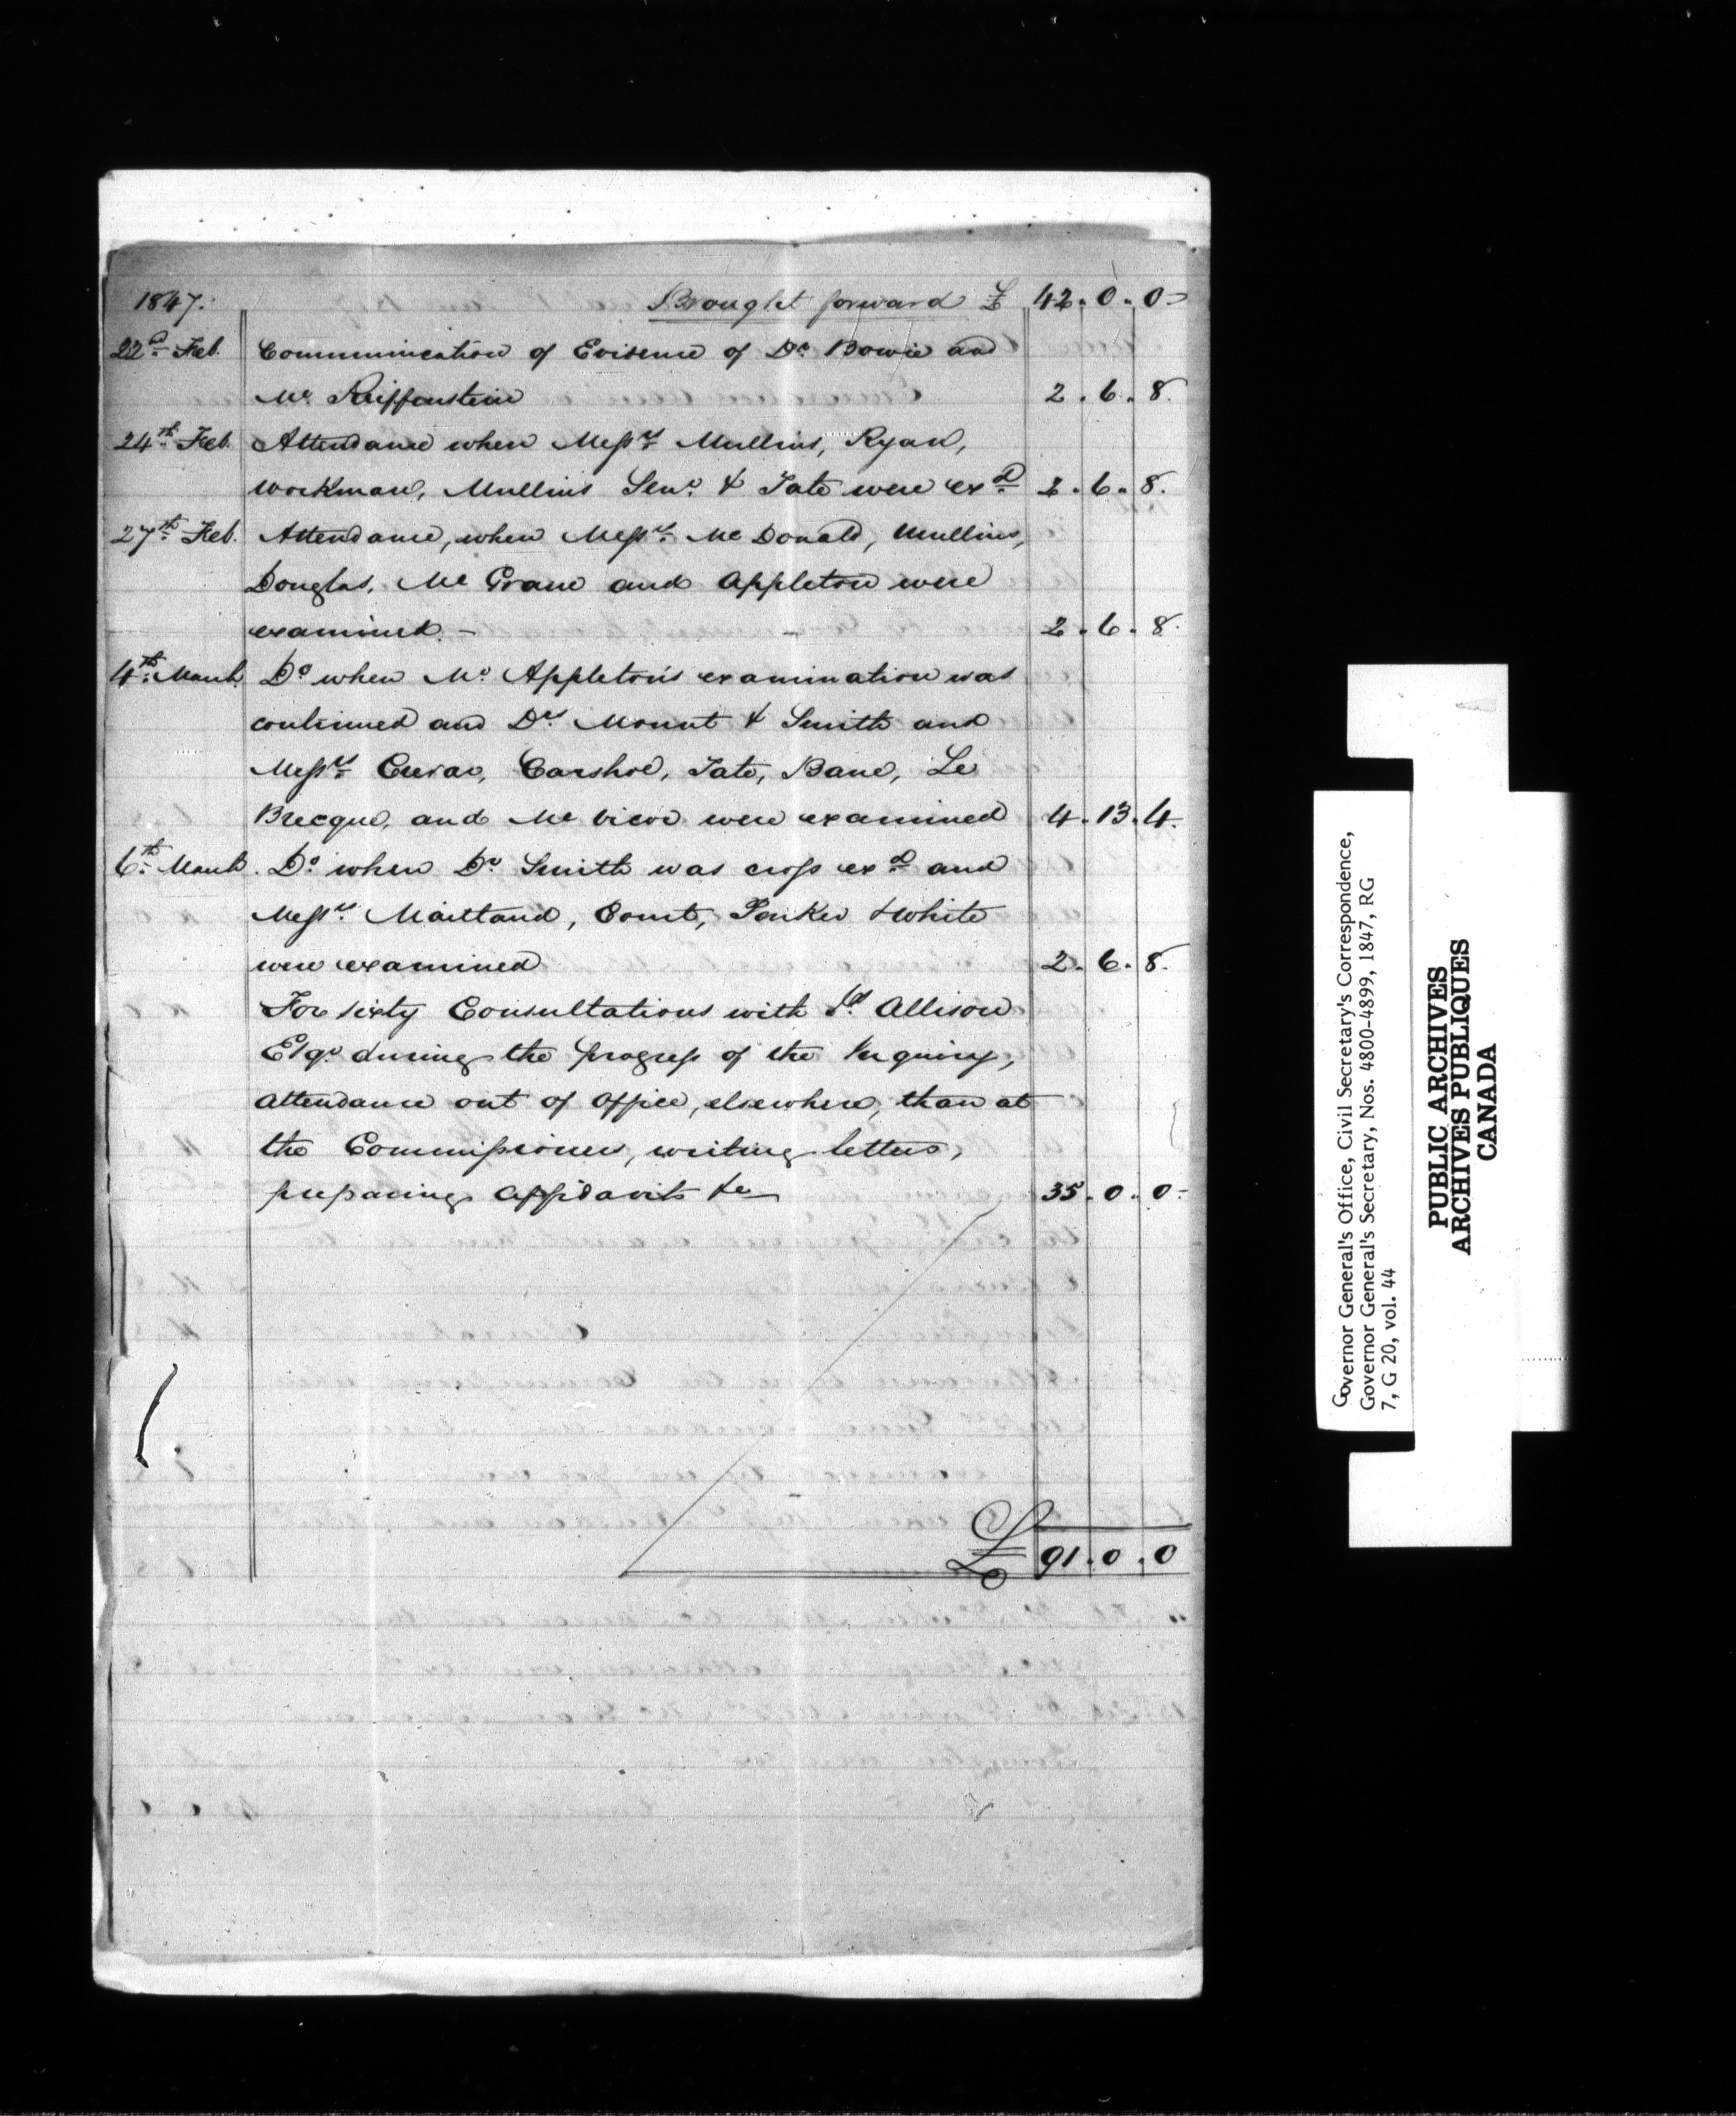 1847. Brought forward £ 42. 0. 0
22nd Feb. Communication of Evidence of Dr Bowie and
Mr Reiffenstein 2. 6. 8.
24th Feb. Attendance when Messrs Mullins, Ryan,
Workman, Mullins Senr & Tate were exd 2. 6. 8.
27th Feb. Attendance, when Messrs Mc Donald, Mullins,
Douglas, Mc Grane and Appleton were
examined. - 2. 6. 8.
4th March Do when Mr Appleton's examination was
continued and Drs Mount & Smith and
Messrs Carshoe, Tate, Bane, Le
Brecque, and were examined 4. 13. 4.
6th March. Do when Dr Smith was cross exd and
Messrs Maitland, Court, & White
were examined 2. 6. 8.
For sixty Consultations with Allison
Esqr during the progress of the Inquiry,
attendance out of Office, elsewhere, than at
the Commissioners, writing letters,
preparing Affidavits &c 35. 0. 0-
£ 91. 0. 0
Governor General's Office, Civil Secretary's Correspondence,
Governor General's Secretary, Nos. 4800-4899, 1847, RG
7, G 20, vol. 44
PUBLIC ARCHIVES
ARCHIVES PUBLIQUES
CANADA